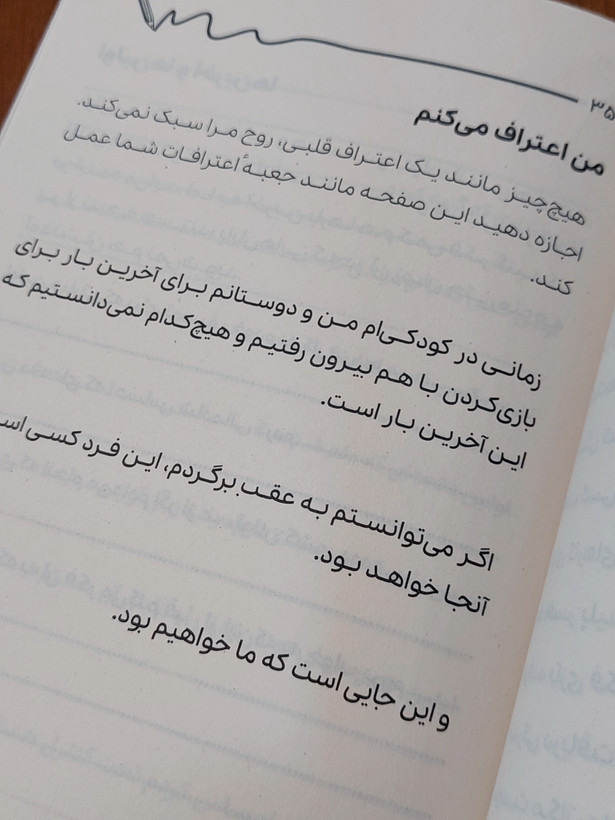 ۳۵
من اعتراف می‌کنم
هیچ‌چیز مانند یک اعتراف قلبی، روح مرا سبک نمی‌کند.
اجازه دهید این صفحه مانند جعبهٔ اعترافات شما عمل
کند.
زمانی در کودکی‌ام من و دوستانم برای آخرین بار برای
بازی‌کردن با هم بیرون رفتیم و هیچ‌کدام نمی‌دانستیم که
این آخرین بار است.
اگر می‌توانستم به عقب برگردم، این فرد کسی
آنجا خواهد بود.
و این جایی است که ما خواهیم بود.